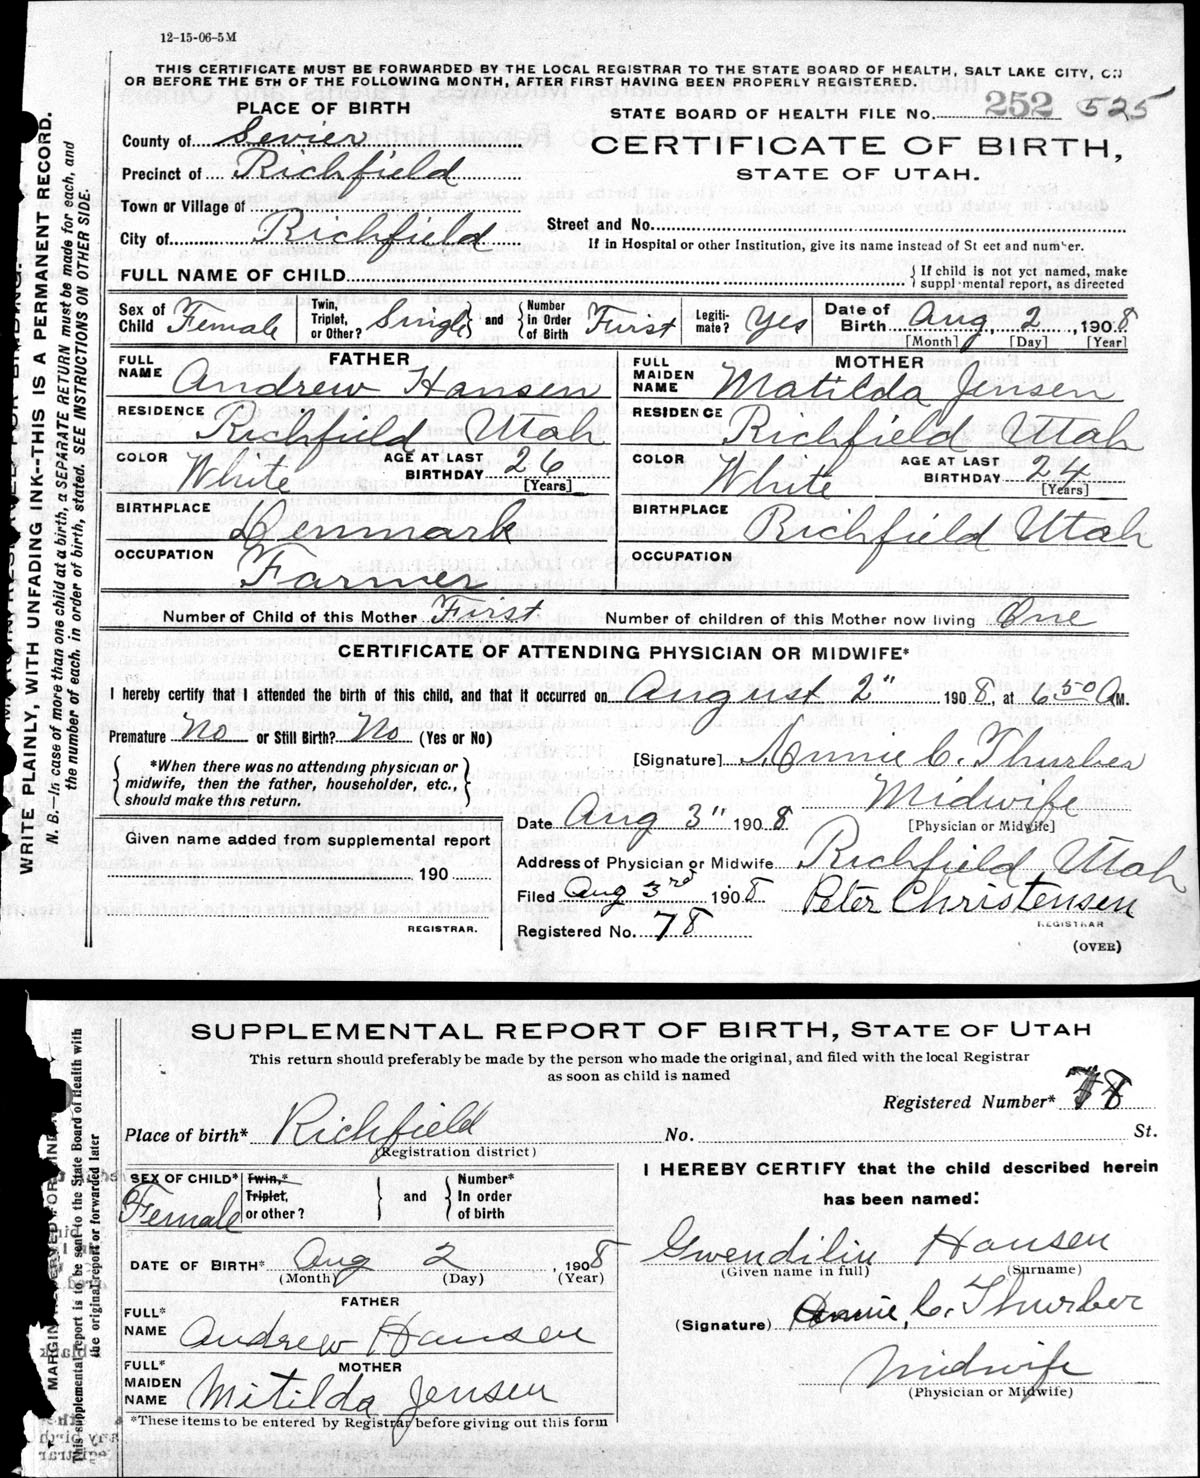 12-15-06-5M
THIS CERTIFICATE MUST BE FORWARDED BY THE LOCAL REGISTRAR TO THE STATE BOARD OF HEALTH, SALT LAKE CITY, ON
OR BEFORE THE 5TH OF THE FOLLOWING MONTH, AFTER FIRST HAVING BEEN PROPERLY REGISTERED.
PLACE OF BIRTH
STATE BOARD OF HEALTH FILE No. 252 525
County of Sevier
CERTIFICATE OF BIRTH,
Precinct of Richfield
STATE OF UTAH.
Town or Village of
Street and No.
City of Richfield
If in Hospital or other Institution, give its name instead of St eet and number.
FULL NAME OF CHILD
{If child is not yet named, make
suppl·mental report, as directed
Sex of Child Female
Twin, Triplet, or Other? Single and Number in Order of Birth First
Legiti-mate? Yes
Date of Birth Aug. 2, 1908
[Month] [Day] [Year]
FATHER
FULL NAME Andrew Hansen
RESIDENCE Richfield Utah
COLOR White AGE AT LAST BIRTHDAY 26
[Years]
BIRTHPLACE Denmark
OCCUPATION Farmer
MOTHER
FULL MAIDEN NAME Matilda Jensen
RESIDENCE Richfield Utah
COLOR White AGE AT LAST BIRTHDAY 24
[Years]
BIRTHPLACE Richfield Utah
OCCUPATION
Number of Child of this Mother First Number of children of this Mother now living One
CERTIFICATE OF ATTENDING PHYSICIAN OR MIDWIFE*
I hereby certify that I attended the birth of this child, and that it occurred on August 2" 1908, at 6 50 A M.
Premature No or Still Birth? No (Yes or No)
{*When there was no attending physician or
midwife, then the father, householder, etc.,
should make this return.}
[Signature] Annie C. Thurber
Midwife
[Physician or Midwife]
Date Aug 3" 1908
Given name added from supplemental report
190
REGISTRAR.
Address of Physician or Midwife Richfield Utah
Filed Aug 3rd 1908 Peter Christensen
REGISTRAR
Registered No. 78
(OVER)
WRITE PLAINLY, WITH UNFADING INK--THIS IS A PERMANENT RECORD.
N. B.—In case of more than one child at a birth, a SEPARATE RETURN must be made for each, and
the number of each, in order of birth, stated. SEE INSTRUCTIONS ON OTHER SIDE.
SUPPLEMENTAL REPORT OF BIRTH, STATE OF UTAH
This return should preferably be made by the person who made the original, and filed with the local Registrar
as soon as child is named
Registered Number* 78
Place of birth* Richfield No. St.
(Registration district)
SEX OF CHILD* Female
Twin,* Triplet, or other? } and { Number* In order of birth
DATE OF BIRTH* Aug 2, 1908
(Month) (Day) (Year)
FATHER
FULL* NAME Andrew Hansen
MOTHER
FULL* MAIDEN NAME Mitilda Jensen
*These items to be entered by Registrar before giving out this form
I HEREBY CERTIFY that the child described herein
has been named:
Gwendilin Hansen
(Given name in full) (Surname)
(Signature) Annie, C. Thurber
Midwife
(Physician or Midwife)
This supplemental report is to be sent to the State Board of Health with
the original report or forwarded later